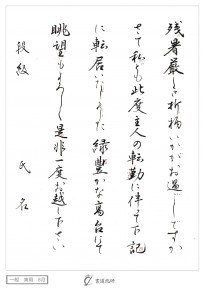 残暑厳しい折柄いかがお過しですか
さて私も此度主人の転勤に伴って下記
に転居いたしました 緑豊かな高台にて
眺望もよろしく是非一度お越し下さい
段級 氏名
一般 実用 8月
書道総時